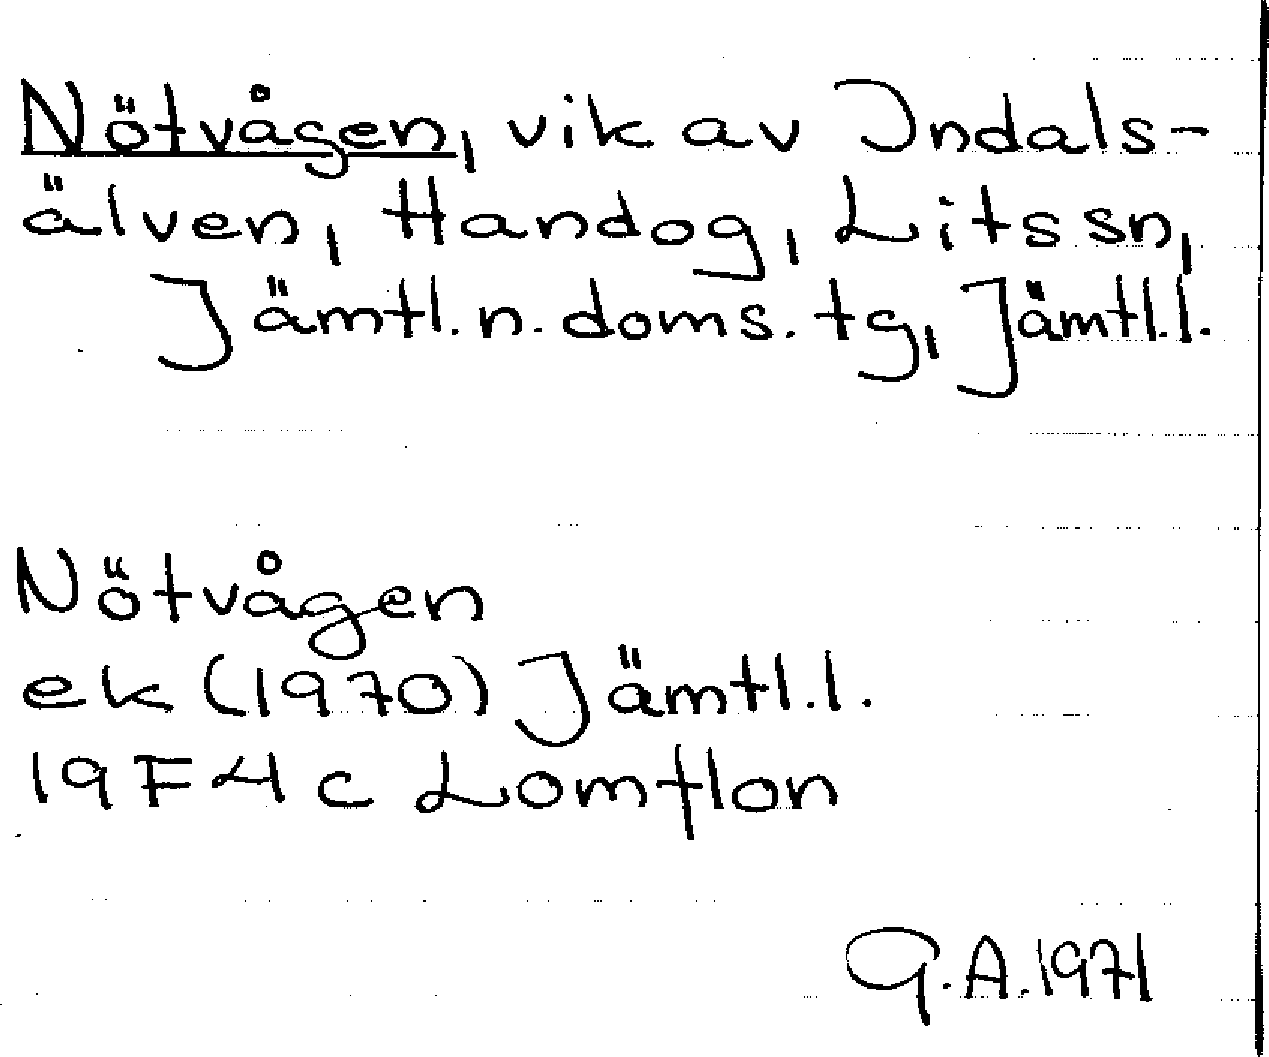 Nötvågen, vik av Indals-
älven, Handog, Lits sn,
Jämtl. n. doms. tg, Jämtl. l.
Nötvågen
ek (1970) Jämtl. l.
19 F 4 c Lomtlon
G. A. 1971